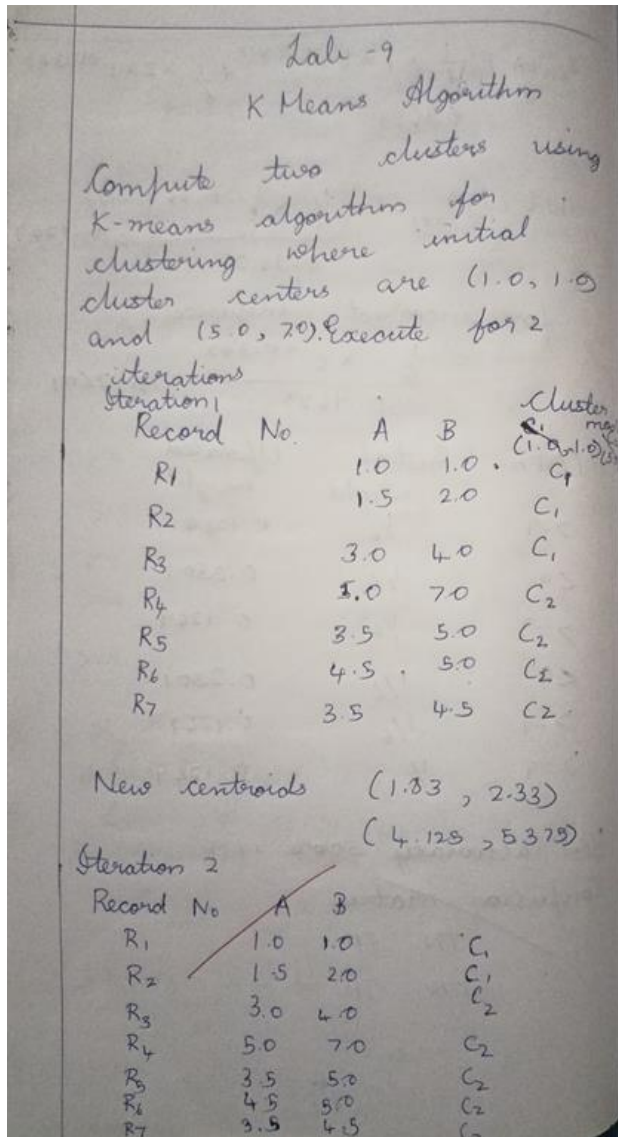 Lab -9
K Means Algorithm
Compute two clusters using
K-means algorithm for
clustering where initial
cluster centers are (1.0, 1.0)
and (5.0, 7.0). Execute for 2
iterations
Iteration 1
Record No. A B Cluster
(1.0, 1.0)
R1 1.0 1.0 C1
R2 1.5 2.0 C1
R3 3.0 4.0 C1
R4 5.0 7.0 C2
R5 3.5 5.0 C2
R6 4.5 5.0 C2
R7 3.5 4.5 C2
New centroids (1.83, 2.33)
(4.125, 5.375)
Iteration 2
Record No A B
R1 1.0 1.0 C1
R2 1.5 2.0 C1
R3 3.0 4.0 C2
R4 5.0 7.0 C2
R5 3.5 5.0 C2
R6 4.5 5.0 C2
R7 3.5 4.5